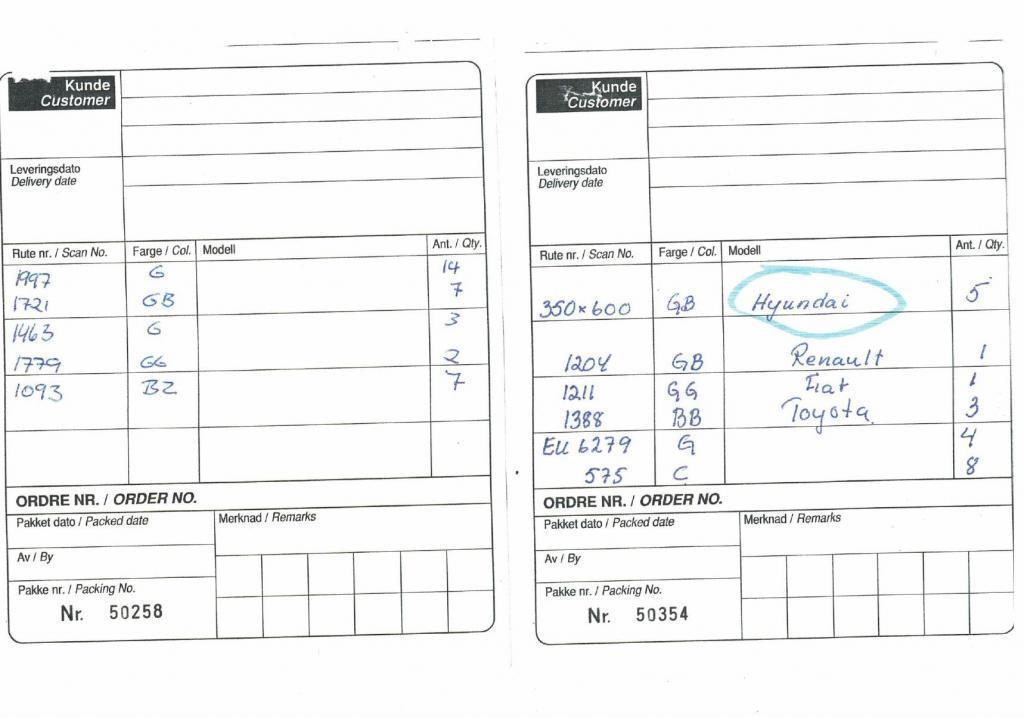 Kunde
Customer
Leveringsdato
Delivery date
Rute nr. / Scan No. Farge / Col. Modell Ant. / Qty.
1997 G 14
1721 GB 7
1463 G 3
1779 GG 2
1093 BZ 7
ORDRE NR. / ORDER NO.
Pakket dato / Packed date Merknad / Remarks
Av / By
Pakke nr. / Packing No.
Nr. 50258
Kunde
Customer
Leveringsdato
Delivery date
Rute nr. / Scan No. Farge / Col. Modell Ant. / Qty.
350×600 GB Hyundai 5
1204 GB Renault 1
1211 GG Fiat 1
1388 BB Toyota 3
EU 6279 G 4
575 C 8
ORDRE NR. / ORDER NO.
Pakket dato / Packed date Merknad / Remarks
Av / By
Pakke nr. / Packing No.
Nr. 50354